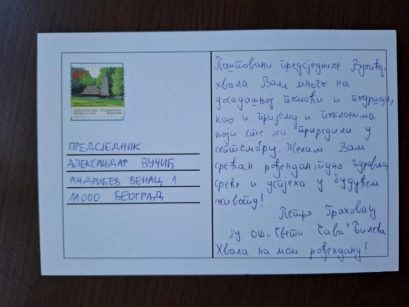 ПРЕДСЈЕДНИК
АЛЕКСАНДАР ВУЧИЋ
АНДРИЋЕВ ВЕНАЦ 1
11000 БЕОГРАД
Поштовани предсједниче Вучићу,
хвала Вам много на
досадашњој помоћи и подршци,
као и пријему и поклонима
које сте ми приредили у
септембру. Желим Вам
срећан рођендан, пуно здравља,
среће и успјеха у будућем
животу!
Петра Граховац
ЈУ ОШ „Свети Сава" Билећа
Хвала на мом рођендану!